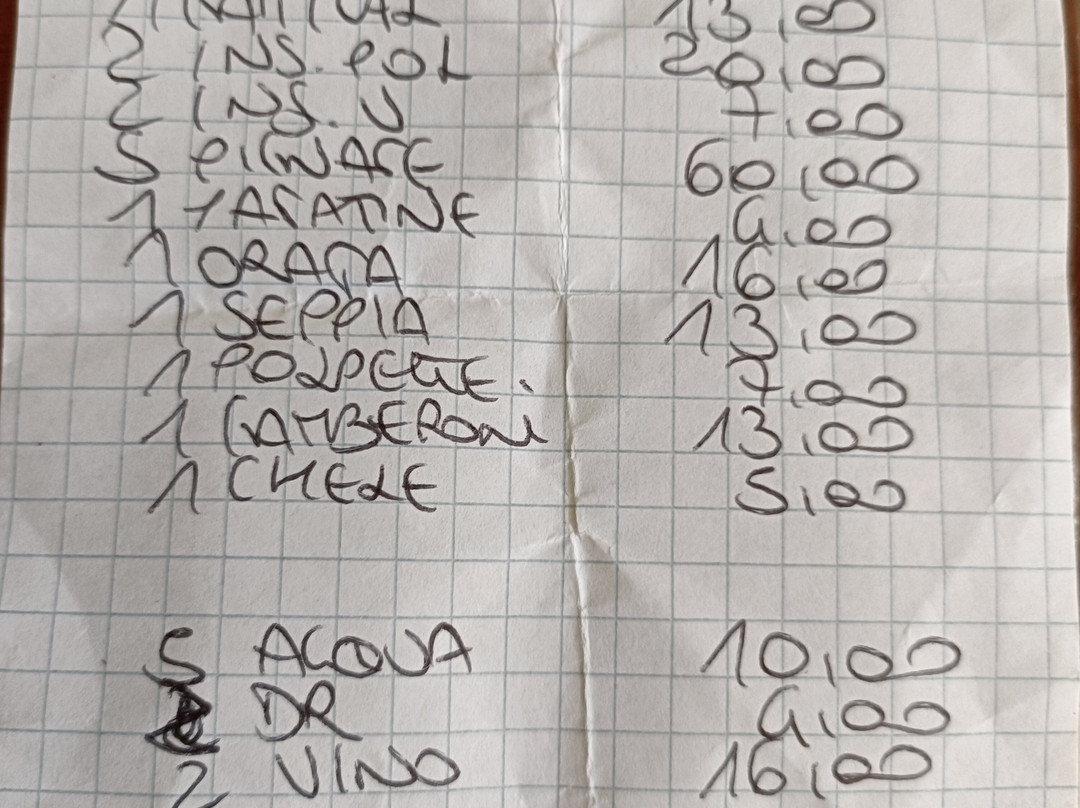 13,00
2 INS. POL 20,00
2 INS. V 7,00
5 PIGNATE 60,00
1 PATATINE 4,00
1 ORATA 16,00
1 SEPPIA 13,00
1 POLPETTE. 7,00
1 GAMBERONI 13,00
1 CHELE 5,00
5 ACQUA 10,00
DR 4,00
2 VINO 16,00